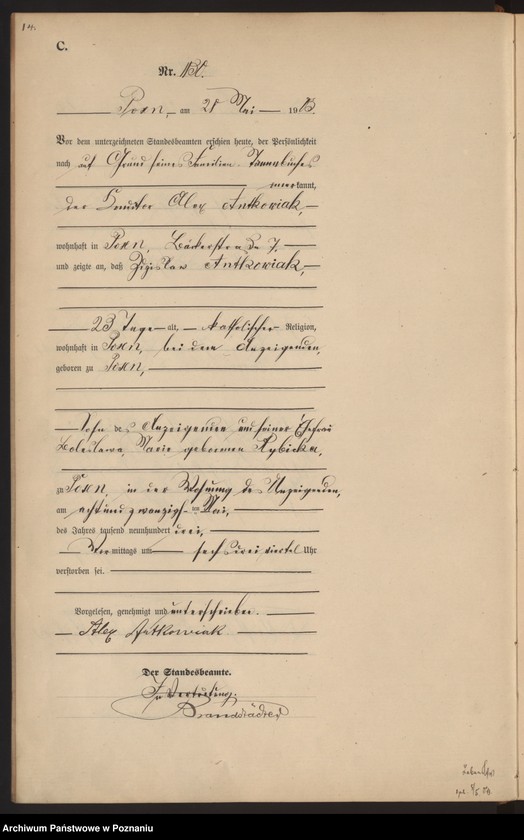 C.
Nr.
Posen, am 28 Mai 1903.
Vor dem unterzeichneten Standesbeamten erschien heute, der Persönlichkeit
nach auf Grund seines Familien-Stammbuches
anerkannt,
der Alex Antkowiak,
wohnhaft in Posen, Bäckerstraße 7,
und zeigte an, daß Antkowiak,
23 Tage alt, katholischer Religion,
wohnhaft in Posen, bei dem Anzeigenden,
geboren zu Posen,
Sohn des Anzeigenden und seiner Ehefrau
Boleslawa, Marie geborenen Rybicka,
zu Posen, in der Wohnung des Anzeigenden,
am achtundzwanzigsten Mai,
des Jahres tausend neunhundert drei,
Vormittags um sechs drei viertel Uhr
verstorben sei.
Vorgelesen, genehmigt und unterschrieben.
Alex Antkowiak
Der Standesbeamte.
In Vertretung.
Brandstädter
Archiwum Państwowe w Poznaniu